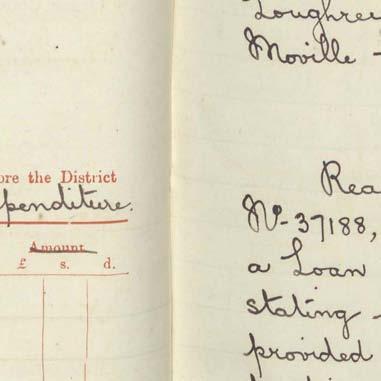 ore the District
penditure.
Amount
£ s. d.
Loughre
Moville -
Rea
No- 37188,
a Loan
stating -
provided